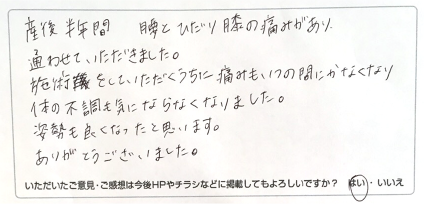 産後半年間 腰とひだり膝の痛みがあり
通わせていただきました。
施術をしていただくうちに痛みもいつの間にかなくなり
体の不調も気にならなくなりました。
姿勢も良くなったと思います。
ありがとうございました。
いただいたご意見・ご感想は今後HPやチラシなどに掲載してもよろしいですか？ はい・いいえ